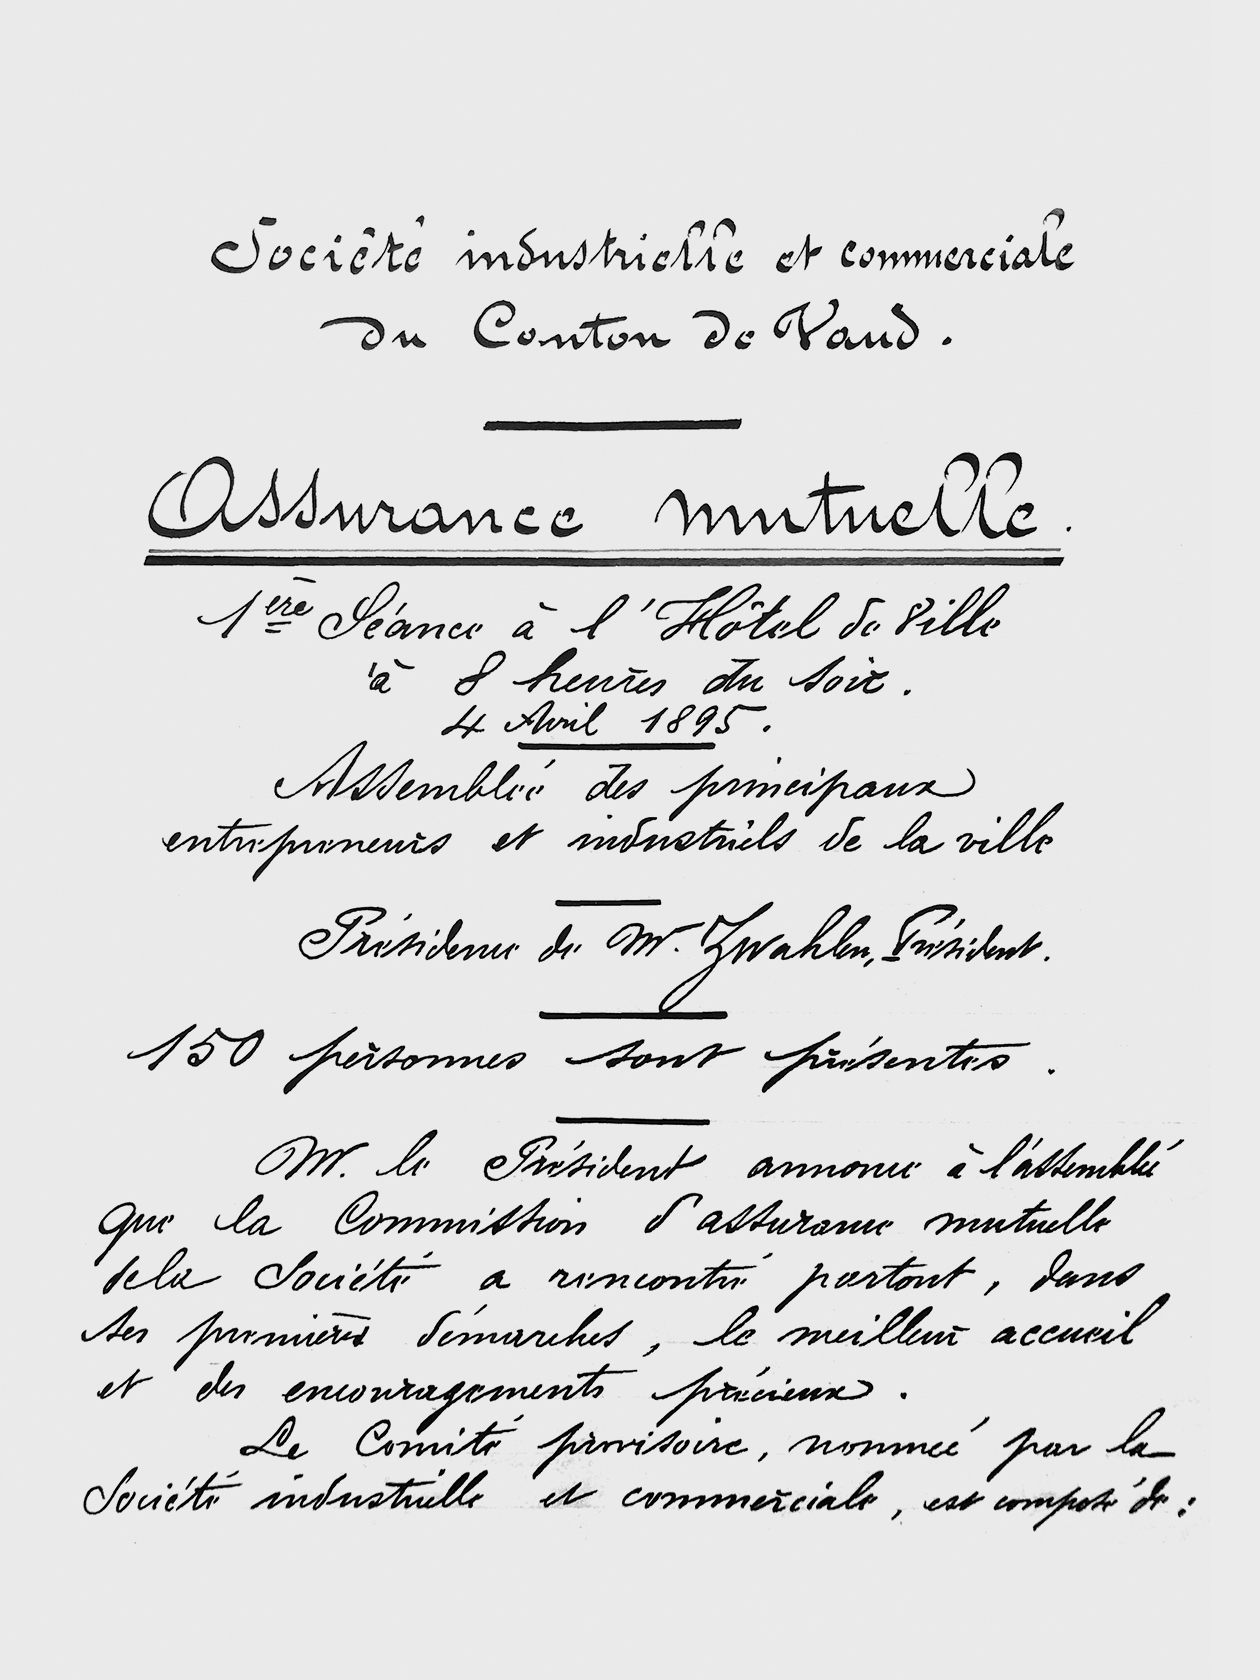 Société industrielle et commerciale
du Canton de Vaud.
Assurance mutuelle.
1ère Séance à l'Hôtel de Ville
à 8 heures du soir.
4 Avril 1895.
Assemblée des principaux
entrepreneurs et industriels de la ville
Présidence de M. Zwahlen, Président.
150 personnes sont présentes.
M. le Président annonce à l'assemblée
que la Commission d'assurance mutuelle
de la Société a rencontré partout, dans
ses premières démarches, le meilleur accueil
et des encouragements précieux.
Le Comité provisoire, nommé par la
Société industrielle et commerciale, est composé de: